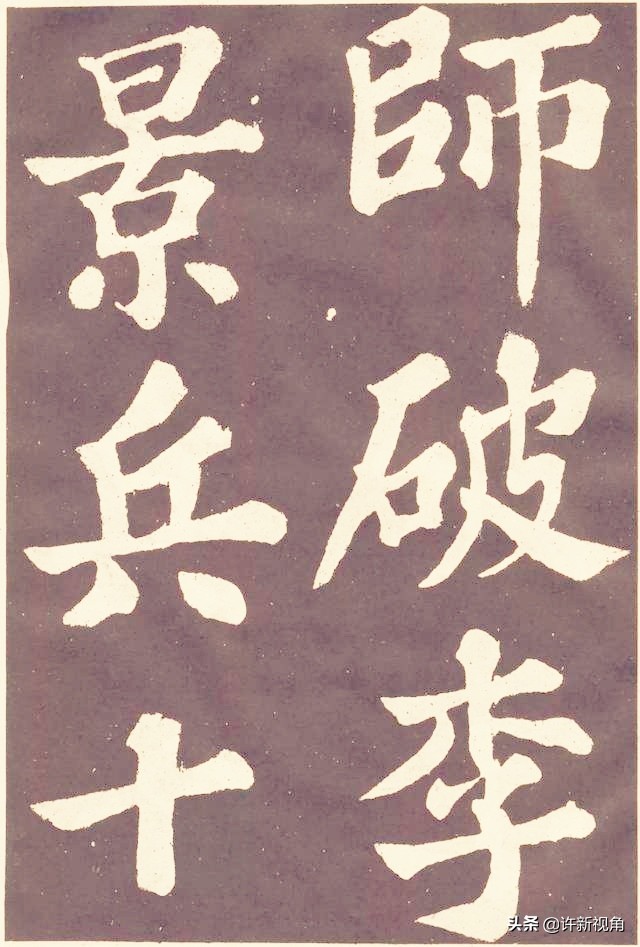 師破李
景兵十
头条 @许新视角